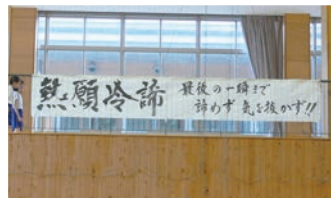 熱願冷諦
最後の一瞬まで
諦めず気を抜かず!!